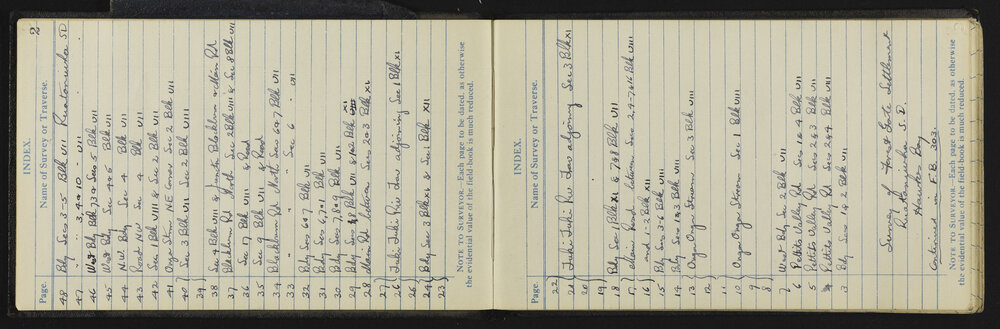 2
INDEX.
Page. Name of Survey or Traverse.
48 Bdy Secs 3-5 Blk VII Ruataniwha SD
47 " 3, 4 & 10 " VII
46 West Bdy Blk 73 & Sec 5 Blk VII
45 West Bdy Sec 4 & 5 Blk VII
44 N.W. Bdy Sec 4 Blk VII
43 Road N.W Sec 4 Blk
42 Sec 1 Blk VIII & Sec 2 Blk VII
41 Onga Strm, NE Corner Sec 2 Blk VII
40 Sec 3 Blk VII & Sec 2 Blk VII
39
38 Sec 4 Blk VIII & Blackburn & Main Rd
37 Blackburn Rd North Sec 2 Blk VIII & Sec 8 Blk VII
36 Sec 17 Blk VII & Road
35 Sec 9 Blk VII & Road
34 Blackburn Rd North Secs 6 & 7 Blk VII
33 " " Sec 6 " VII
32 Bdy Secs 6 & 7 Blk VII
31 Bdy Secs 6, 7 & 1 Blk VII
30 Bdy Secs 7, 8 & 9 Blk VII
29 Bdy Secs 8 Blk VII & 1 & 2 Blk XI
28 Main Rd between Secs 2 & 3 Blk XI
27
26 Tuki Tuki Riv Trav adjoining Sec 1 Blk XI
25
24 Bdy Sec 3 Blk XI & Sec 1 Blk XII
23
NOTE TO SURVEYOR.—Each page to be dated, as otherwise
the evidential value of the field-book is much reduced.
INDEX.
Page. Name of Survey or Traverse.
22
21 Tuki Tuki Riv Trav adjoing Sec 3 Blk XI
20
19
18 Bdy Sec 1 Blk XI & 7 & 8 Blk VII
17 Main Road between Secs 2, 4-7, & 16 Blk VIII
16 and 1-2 Blk XII
15 Bdy Secs 3-6 Blk VIII
14 Bdy Secs 1 & 3 Blk VIII
13 Onga Onga Stream Sec 3 Blk VIII
12
11
10 Onga Onga Stream Sec 1 Blk VIII
9
8
7 West Bdy Sec 2 Blk VIII
6 Pettits Valley Rd Secs 1 & 4 Blk VIII
5 Pettits Valley Rd Secs 2 & 3 Blk VIII
4 Pettits Valley Rd Secs 2 & 4 Blk VIII
3 Bdy Secs 1 & 2 Blk VIII
Survey of Forest Gate Settlement
Ruataniwha S.D.
Hawkes Bay
Continued in F.B. 303.
NOTE TO SURVEYOR.—Each page to be dated, as otherwise
the evidential value of the field-book is much reduced.